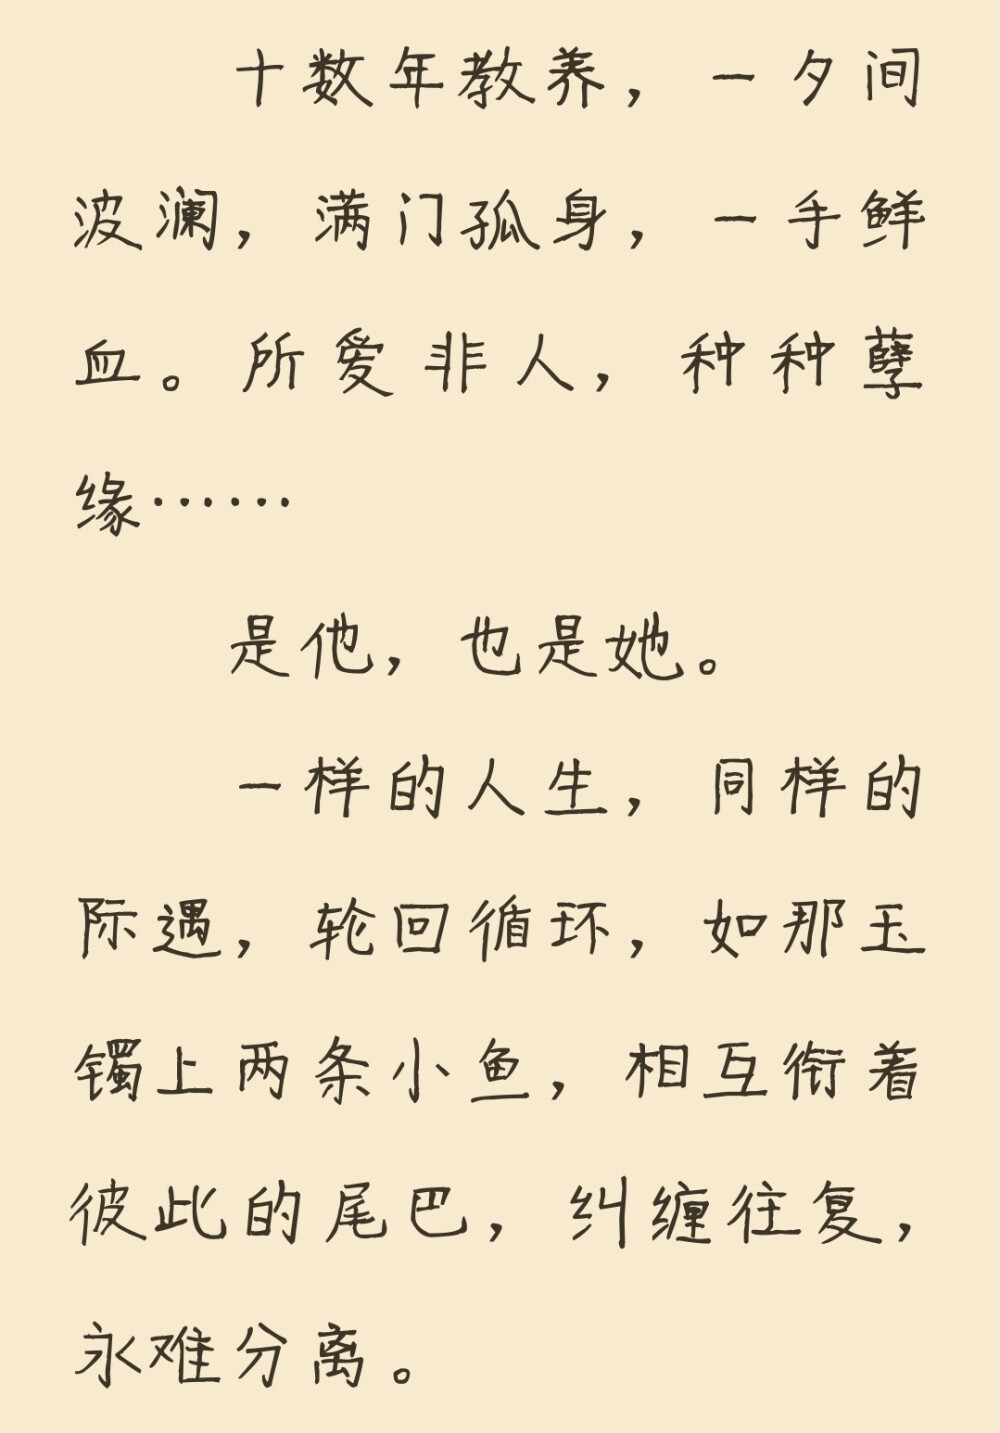 十数年教养，一夕间
波澜，满门孤身，一手鲜
血。所爱非人，种种孽
缘······
是他，也是她。
一样的人生，同样的
际遇，轮回循环，如那玉
镯上两条小鱼，相互衔着
彼此的尾巴，纠缠往复，
永难分离。